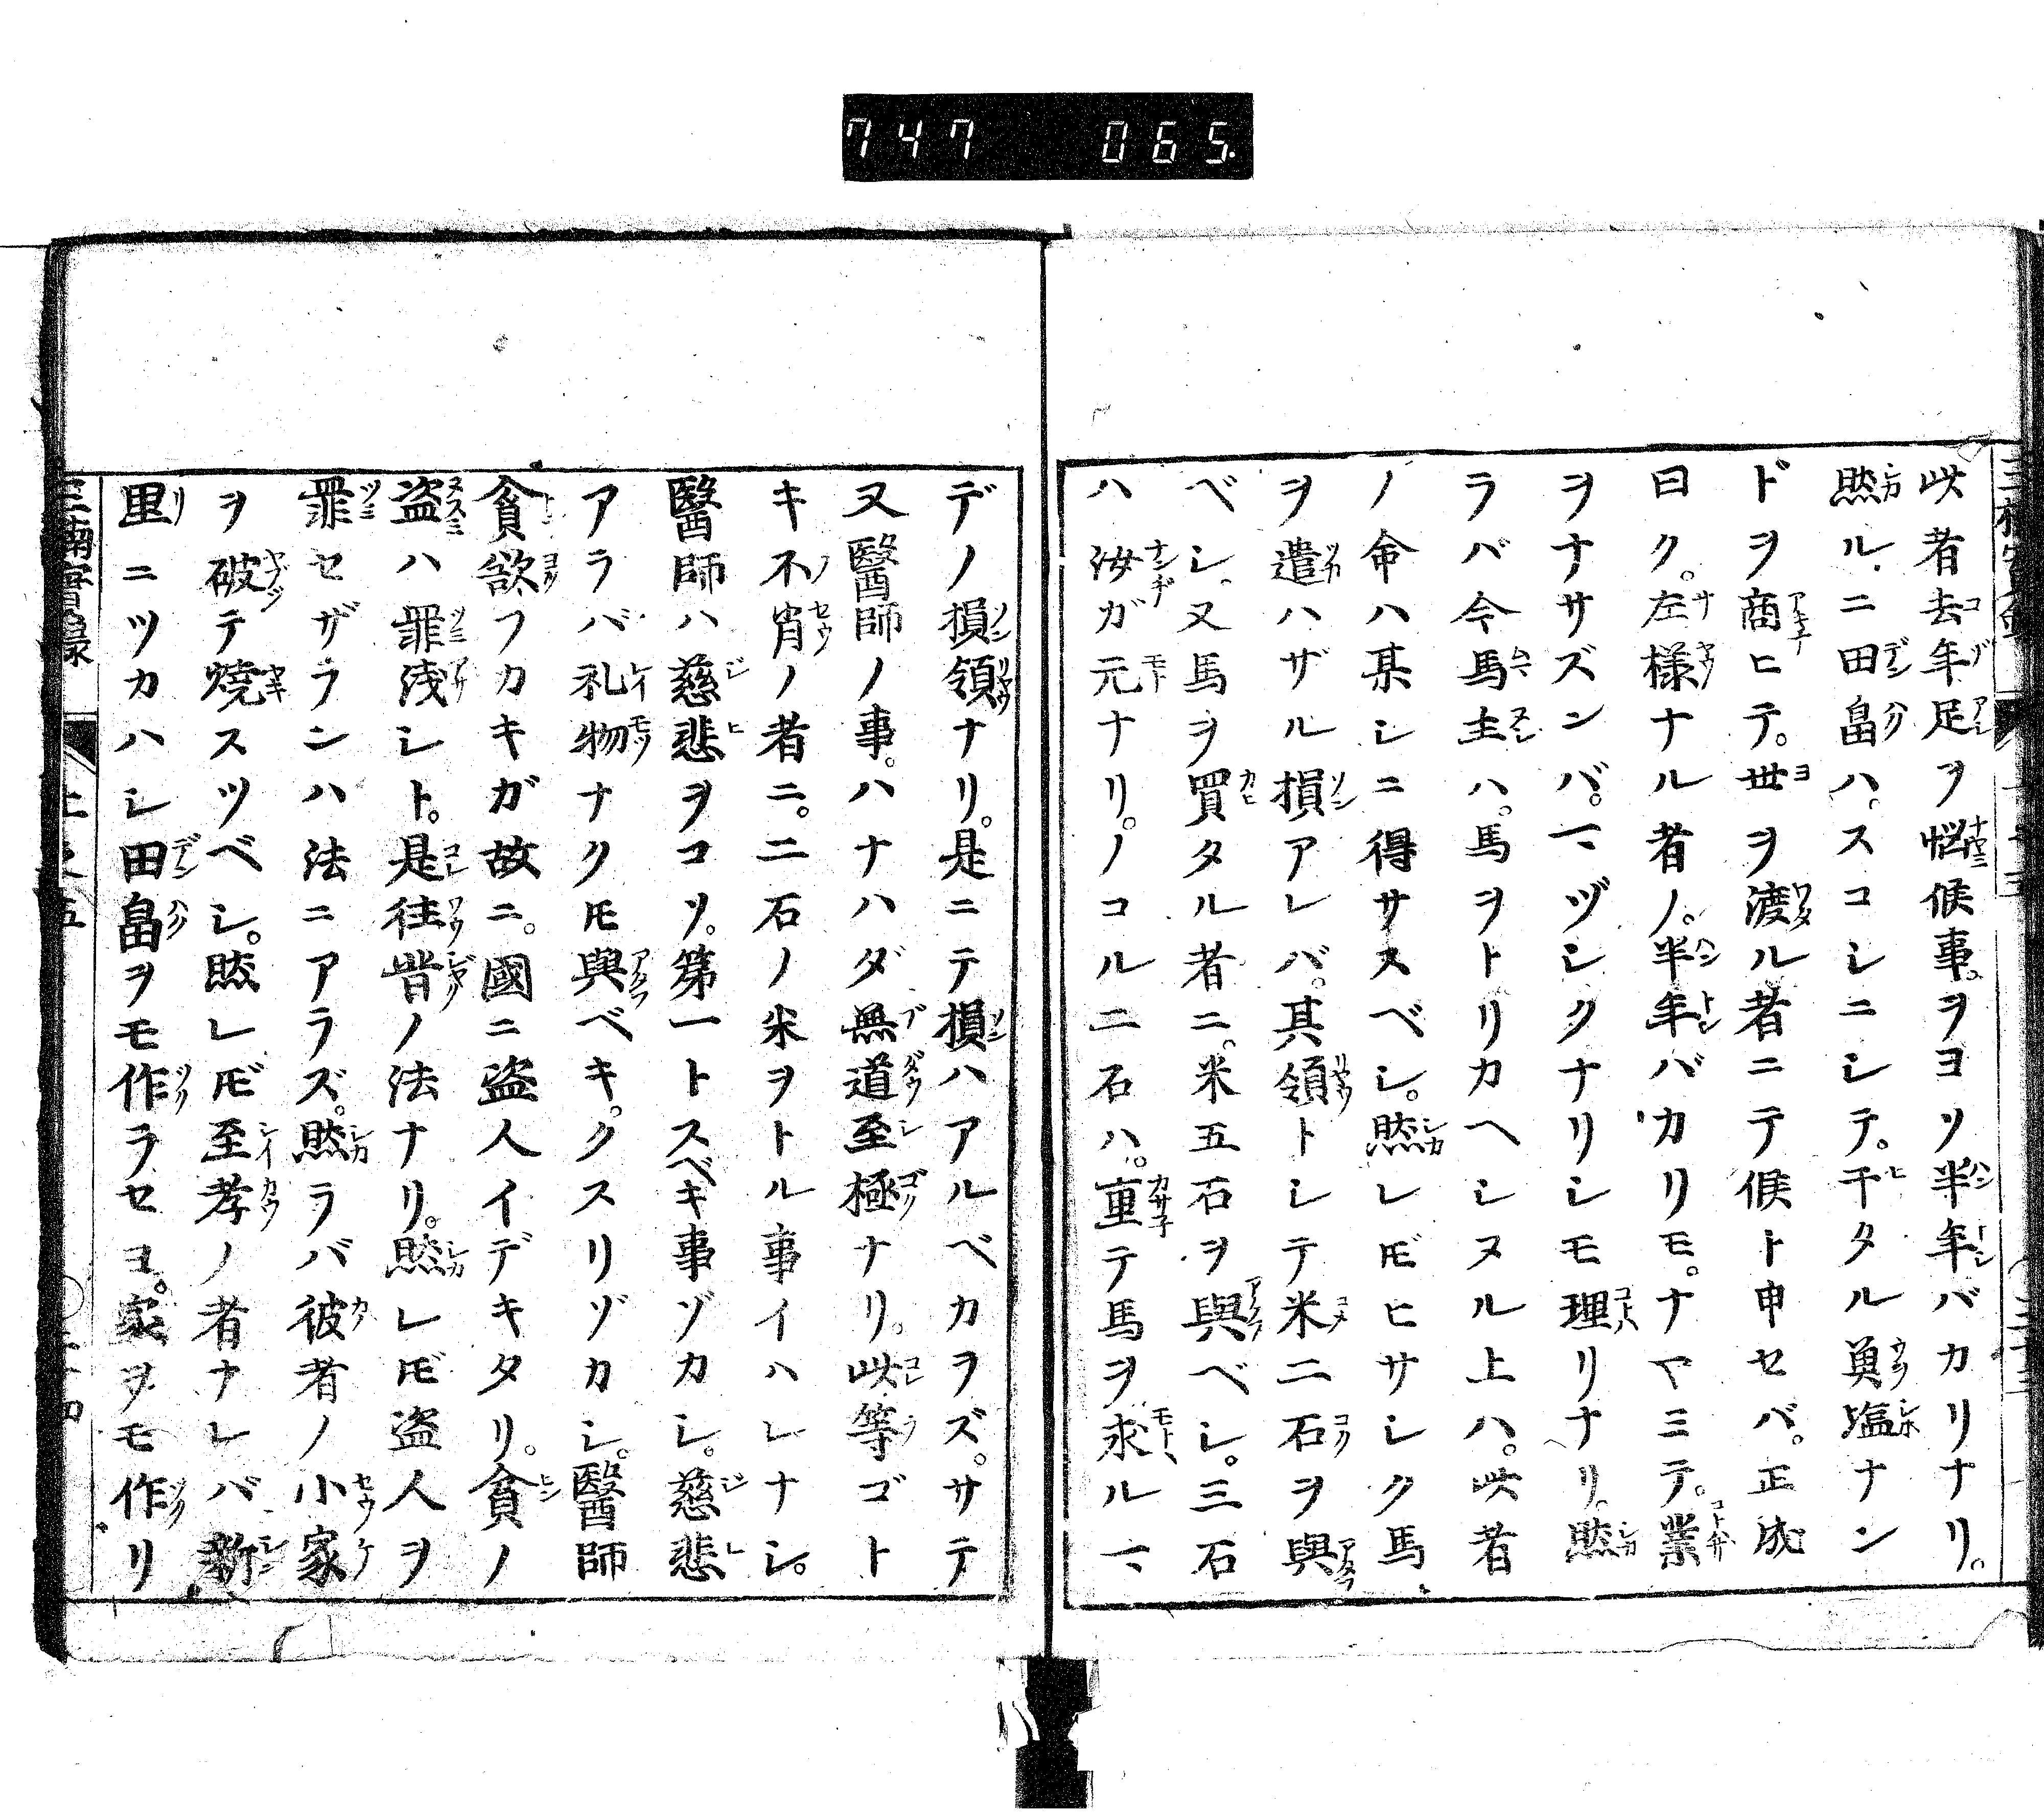 747 065.
此者去年足ヲ悩候事。ヲヨソ半年バカリナリ。
然ルニ田畠ハ。スコシニシテ。干タル魚塩ナン
ドヲ商ヒテ。世ヲ渡ル者ニテ候ト申セバ。正成
曰ク。左様ナル者ノ。半年バカリモ。ナヤミテ。業
ヲナサズンバ。マヅシクナリシモ理リナリ。然
ラバ今馬主ハ。馬ヲトリカヘシヌル上ハ。此者
ノ命ハ某シニ得サスベシ。然レドモヒサシク馬
ヲ遣ハザル損アレバ。其領トシテ米二石ヲ與
ベシ。又馬ヲ買タル者ニ。米五石ヲ與ベシ。三石
ハ汝ガ元ナリ。ノコル二石ハ。重テ馬ヲ求ルマ
デノ損領ナリ。是ニテ損ハアルベカラズ。サテ
又醫師ノ事。ハナハダ無道至極ナリ。此等ゴト
キ不肖ノ者ニ。二石ノ米ヲトル事イハレナシ。
醫師ハ慈悲ヲコソ。第一トスベキ事ゾカシ。慈悲
アラバ礼物ナクトモ與ベキ。クスリゾカシ。醫師
貪欲フカキガ故ニ。國ニ盗人イデキタリ。貪ノ
盗ハ罪浅シト。是往昔ノ法ナリ。然レドモ盗人ヲ
罪セザランハ法ニアラズ。然ラバ彼者ノ小家
ヲ破テ焼スツベシ。然レドモ至孝ノ者ナレバ新
里ニツカハシ田畠ヲモ作ラセコ。家ヲモ作リ